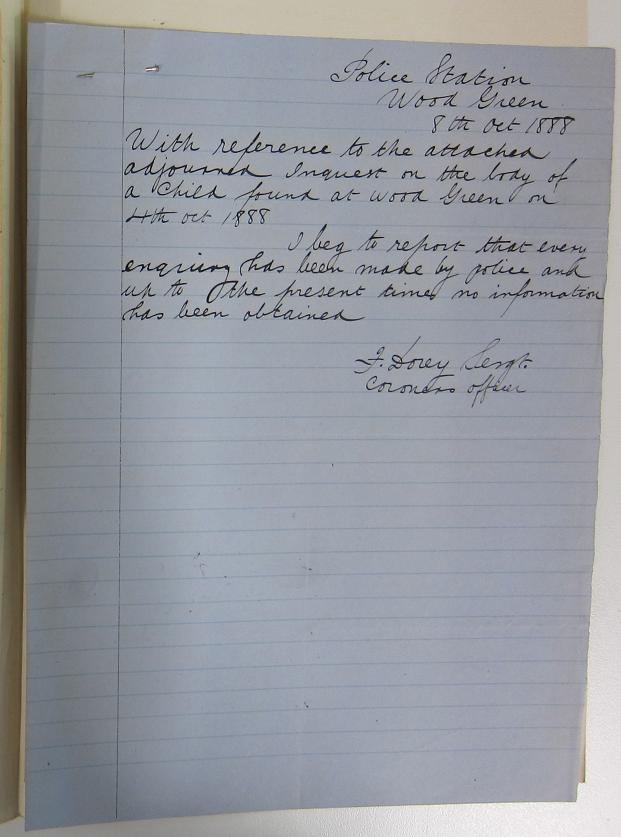 Police Station
Wood Green
8th Oct 1888
With reference to the attached
adjourned Inquest on the body of
a Child found at Wood Green on
4th oct 1888
I beg to report that every
enquiry has been made by police and
up to the present time no information
has been obtained
F. Dovey Sergt.
Coroners officer